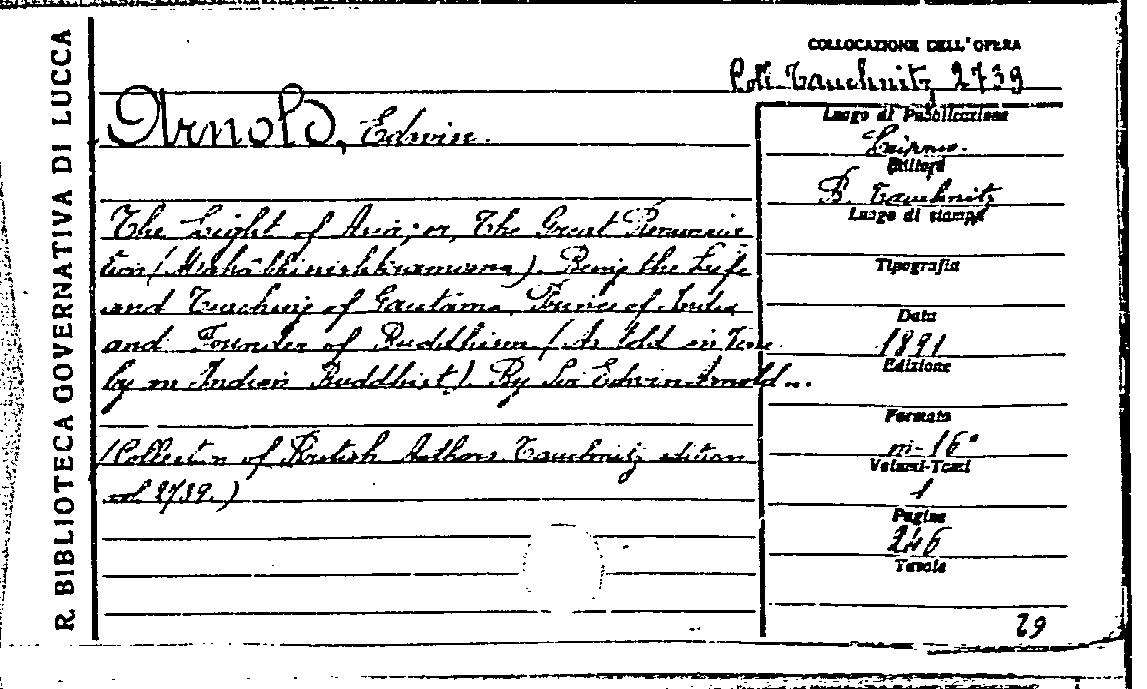 R. BIBLIOTECA GOVERNATIVA DI LUCCA
COLLOCAZIONE DELL'OPERA
Coll. Tauchnitz 2739
Arnold, Edwin.
Luogo di Pubblicazione
Editore
B. Tauchnitz
Luogo di stampa
Tipografia
Data
1891
Edizione
Formato
in-16°
Volumi-Tomi
1
Pagine
246
Tavole
29
The Light of Asia; or, The Great Renuncia
tion (Mahâbhinishkramana). Being the Life
and Teaching of Gautama, Prince of India
and Founder of Buddhism (As told in
by an Indian Buddhist). By Sir Edwin Arnold...
(Collection of British Authors. Tauchnitz edition
vol. 2739.)